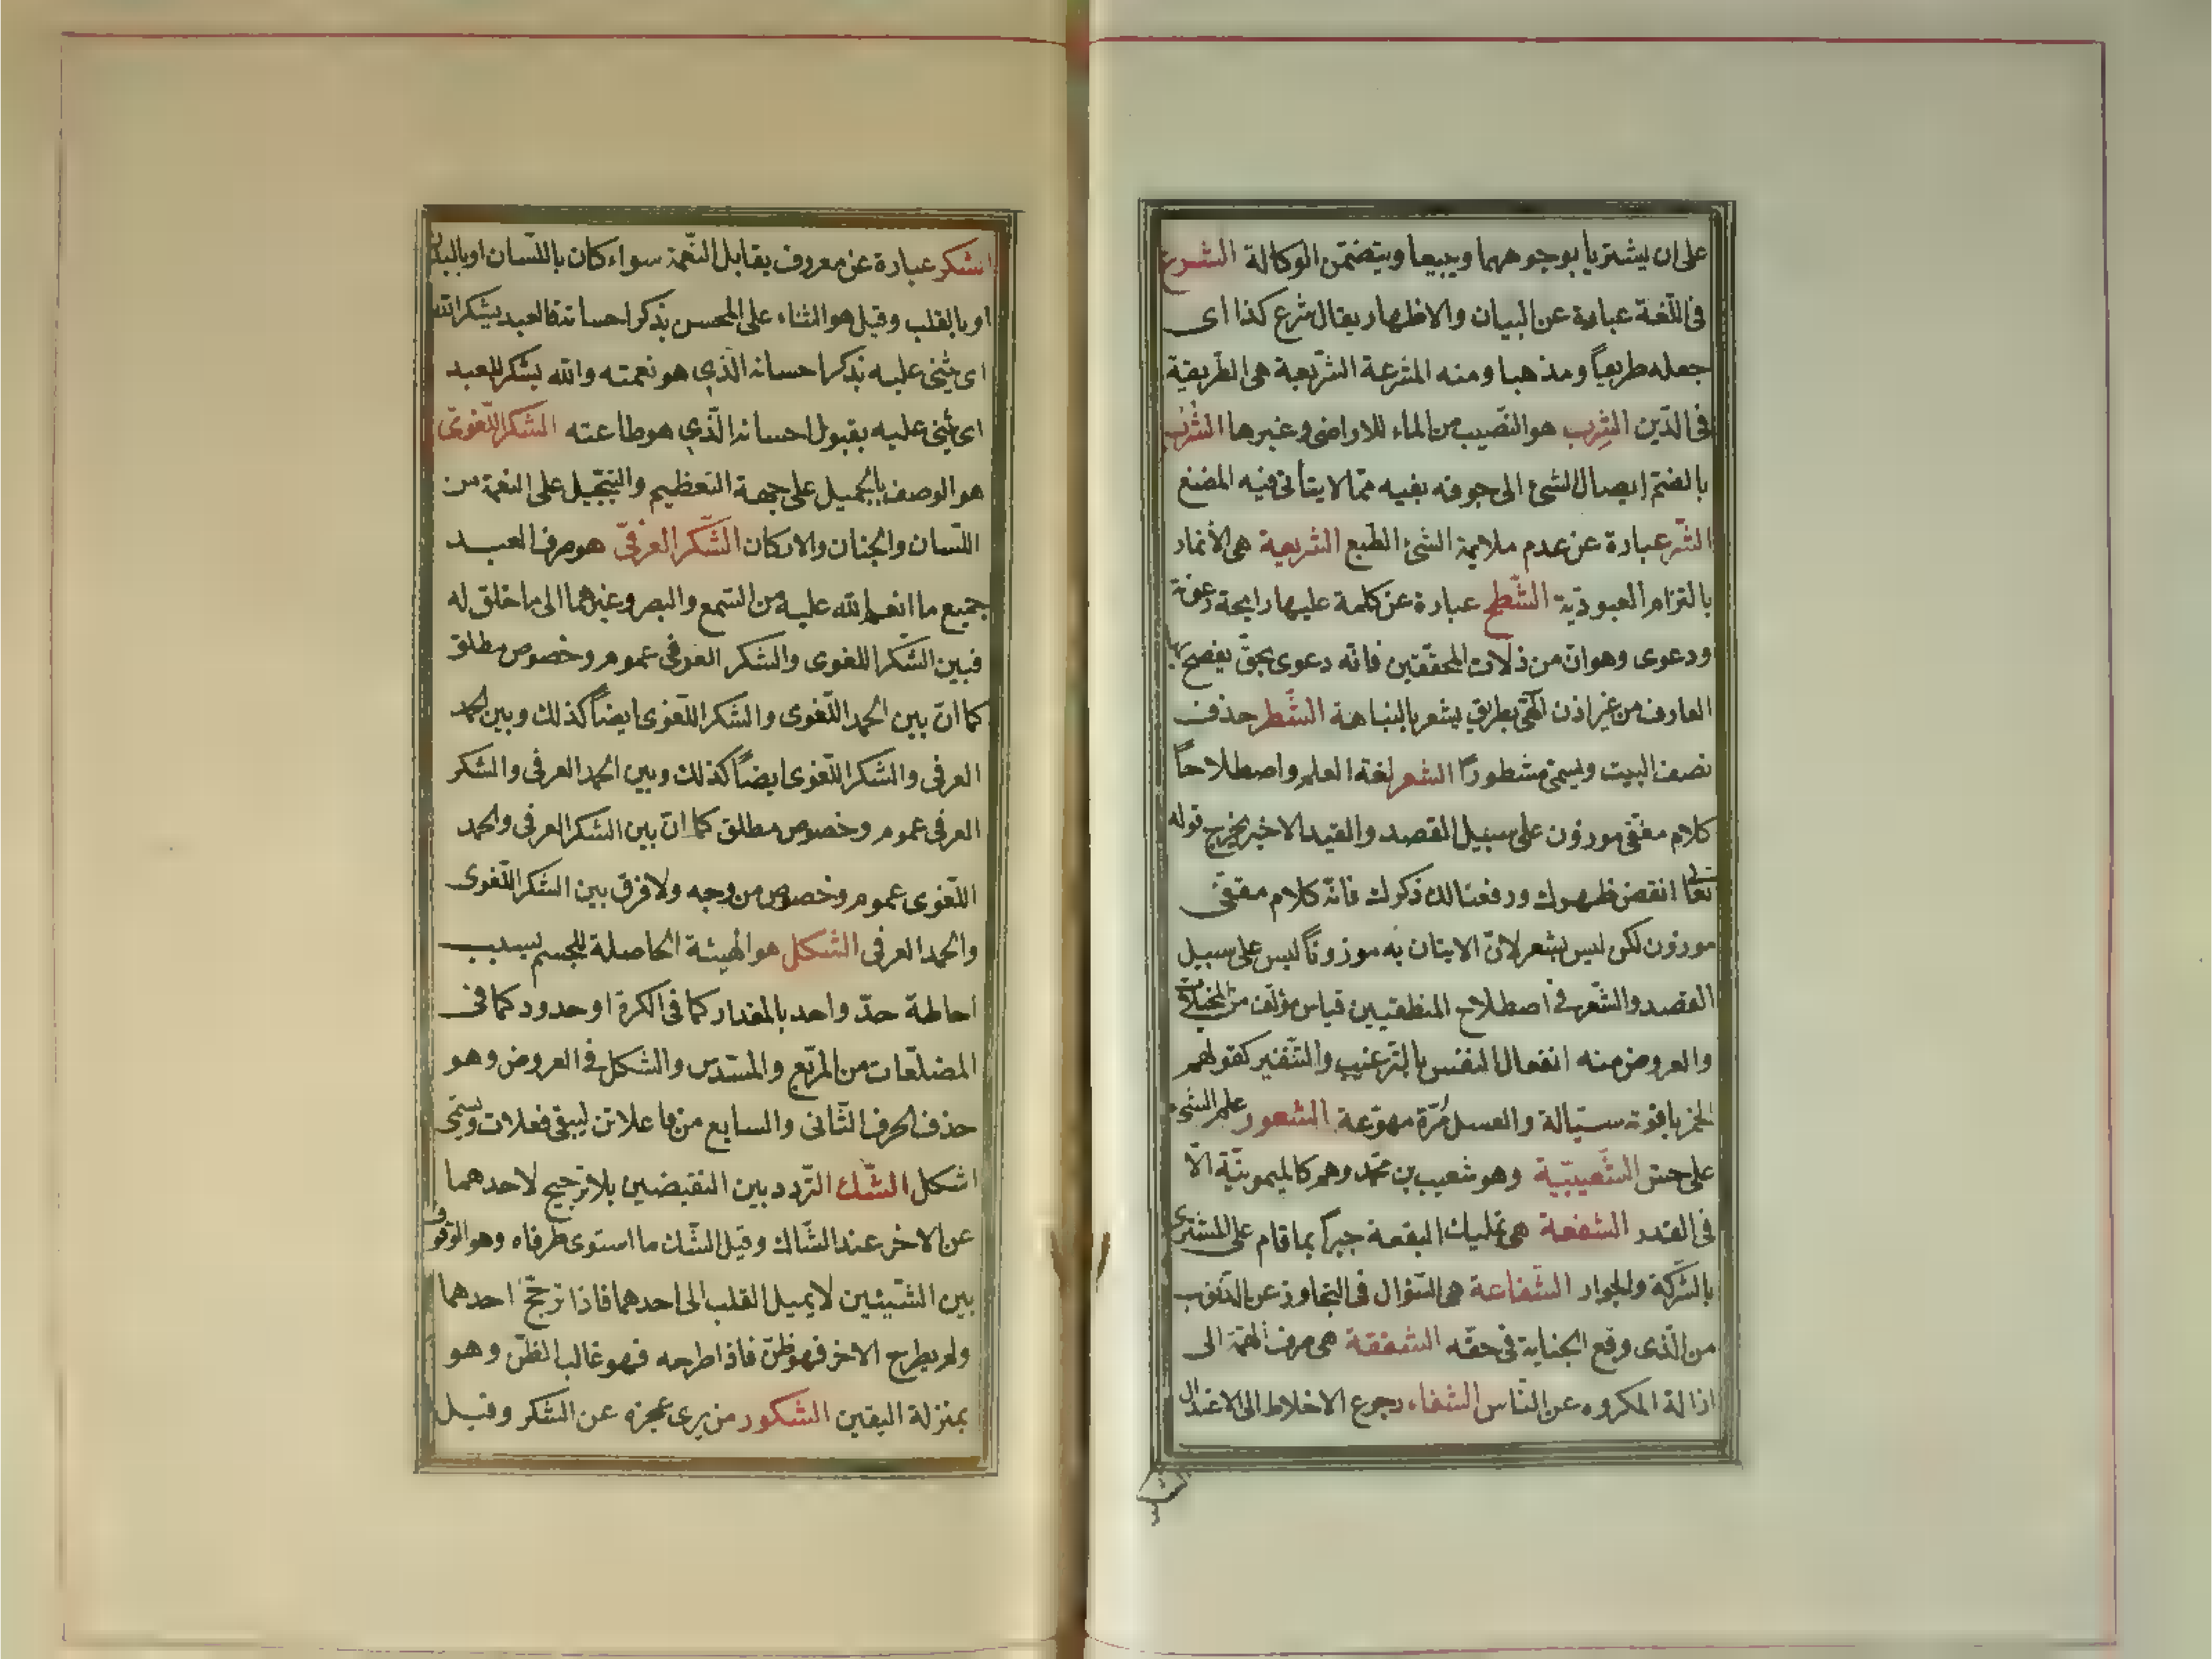 على ان يشتريا بوجوههما ويبيعا ويتضمن الوكالة الشرع
فى اللّغة عبارة عن البيان والاظهار يقال شرع كذا اى
جعله طريقاً ومذهبا ومنه المشرعة الشّريعة هى الطّريقة
فى الدّين الشِرب هو النّصيب من الماء للاراضى وغيرها الشُرب
بالضّم ايصال الشئ الى جوفه بفيه ممّا لا يتأتى فيه المضغ
الشّر عبارة عن عدم ملايمة الشئ الطّبع الشريعة هى الأتمار
بالتزام العبوديّة الشّطح عبارة عن كلمة عليها رايحة رعونة
ودعوى وهو انّ من زلات المحقّقين فانّه دعوى بحقّ يفصح بها
العارف من غير اذن الٓهّى بطريق يشعر بالنباهة الشّطر حذف
نصف البيت ويسمّى مشطوراً الشعر لغة العلم واصطلاحاً
كلام مقفّى موزون على سبيل القصد والقيد الاخير يخرج قوله
تعالى انقض ظهرك ورفعنا لك ذكرك فانّه كلام مقفّى
موزون لكن ليس بشعر لانّ الاتيان به موزوناً ليس على سبيل
القصد والشّعر فى اصطلاح المنطقيين قياس مؤلّف من المخيلات
والعروض منه انفعال النفس بالترغيب والتّنفير كقولهم
الخمر ياقوتة سيّالة والعسل مُرّة مهوّعة الشعور علم الشئ
على حسّ الشّعيبيّة وهو شعيب بن محمّد وهم كالميمونيّة الّا
فى القدر الشفعة هى تمليك البقعة جبراً بما قام على المشترى
بالشّركة والجوار الشّفاعة هى السّؤال فى التجاوز عن الذّنوب
من الّذى وقع الجناية فى حقّه الشفقة هى صرف الهمّة الى
ازالة المكروه عن النّاس الشفاء رجوع الاخلاط الى الاعتدال
الشكر عبارة عن معروف يقابل النّعمة سواء كان باللّسان او باليد
او بالقلب وقيل هو الثناء على المحسن بذكر احسانه فالعبد يشكر الله
اى يثنى عليه بذكر احسانه الّذي هو نعمته والله يشكر للعبد
اى يثنى عليه بقبول احسانه الّذي هو طاعته الشكر اللّغوىّ
هو الوصف بالجميل على جهة التّعظيم والتّبجيل على النعمة من
اللّسان والجنان والاركان الشّكر العرفىّ هو صرف العبد
جميع ما انعم الله عليه من السّمع والبصر وغيرهما الى ما خلق له
فبين الشّكر اللغوى والشكر العرفى عموم وخصوص مطلق
كما انّ بين الحمد اللّغوى والشّكر اللّغوى ايضاً كذلك وبين الحمد
العرفى والشكر اللّغوى ايضاً كذلك وبين الحمد العرفى والشكر
العرفى عموم وخصوص مطلق كما انّ بين الشكر العرفى والحمد
اللّغوى عموم وخصوص من وجه ولا فرق بين الشكر اللّغوى
والحمد العرفى الشكل هو الهيئة الحاصلة للجسم بسبب
احاطة حدّ واحد بالمقدار كما فى الكرة او حدود كما فى
المضلّعات من المربّع والمسّدس والشكل فى العروض وهو
حذف الحرف الثّانى والسابع من فاعلاتن ليبقى فعلات ويسمّى
اشكل الشّك التّردد بين النقيضين بلا ترجيح لاحدهما
عن الاخر عند الشّاك وقيل الشّك ما استوى طرفاه وهو الوقوف
بين الشّيئين لا يميل القلب الى احدهما فاذا ترجّح احدهما
ولم يطرح الاخر فهو ظنّ فاذا طرحه فهو غالب الظنّ وهو
بمنزلة اليقين الشكور من يرى عجزه عن الشكر وقيل